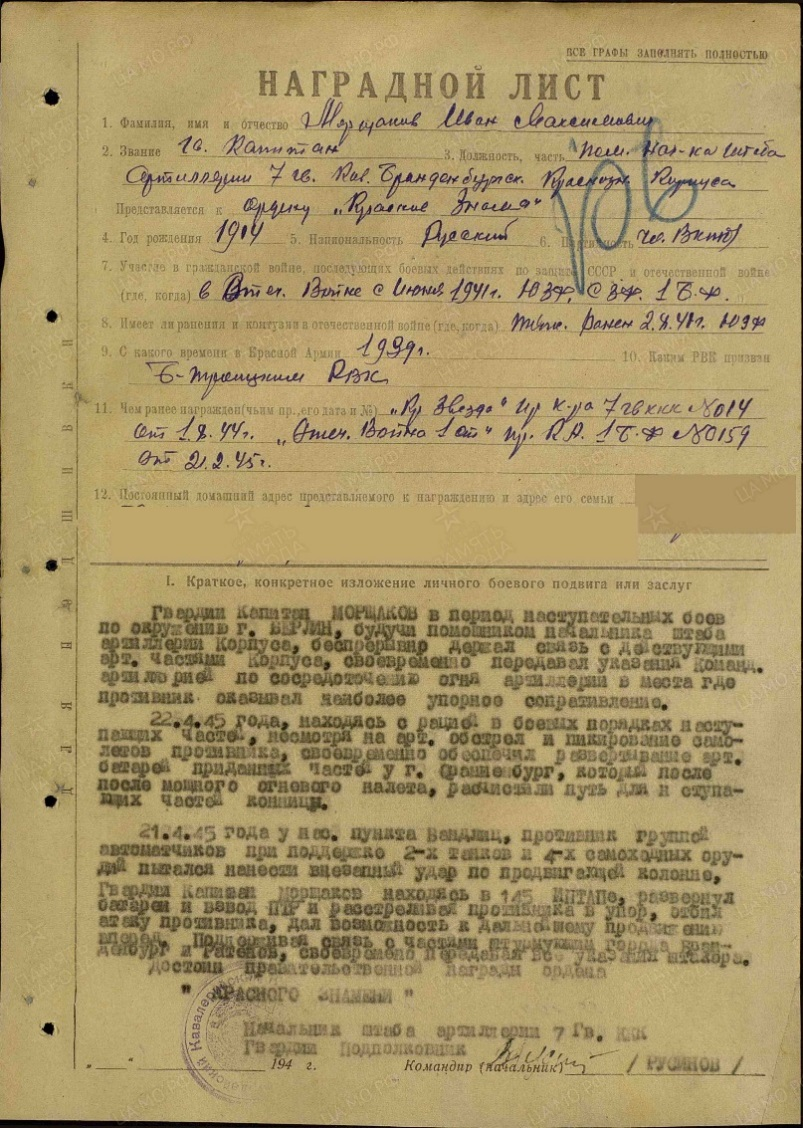 ВСЕ ГРАФЫ ЗАПОЛНЯТЬ ПОЛНОСТЬЮ
НАГРАДНОЙ ЛИСТ
1. Фамилия, имя и отчество Морщаков Иван Максимович
2. Звание гв. Капитан 3. Должность, часть Пом. Нач-ка Штаба
Артиллерии 7 гв. Кав. Бранденбургск. Краснозн. Корпуса
Представляется к ордену „Красное Знамя"
4. Год рождения 1914 5. Национальность Русский 6. Партийность Чл. ВКП(б)
7. Участие в гражданской войне, последующих боевых действиях по защите СССР и отечественной войне
(где, когда) в Отеч. Войне с Июня 1941г. ЮЗФ, СЗФ. 1 Б.Ф.
8. Имеет ли ранения и контузии в отечественной войне (где, когда) Тяж. Ранен 2.8.41г. ЮЗФ
9. С какого времени в Красной Армии 1939г. 10. Каким РВК призван
Б-Троицким РВК
11. Чем ранее награжден (чьим пр., его дата и №) „Кр Звезда" Пр к-ра 7 гв ккк №014
от 1.8.44г. „Отеч. Война 1 ст" пр. 1 Б.Ф №0159
от 21.2.45г.
12. Постоянный домашний адрес представляемого к награждению и адрес его семьи
I. Краткое, конкретное изложение личного боевого подвига или заслуг
Гвардии Капитан МОРЩАКОВ в период наступательных боев
по окружению г. БЕРЛИН, будучи помошником начальника штаба
артиллерии Корпуса, беспрерывно держал связь с действующими
арт. частями Корпуса, своевременно передавал указания Команд.
артиллерией по сосредоточению огня артиллерии в места где
противник оказывал наиболее упорное сопративление.
22.4.45 года, находясь с рацией в боевых порядках насту-
пающих частей, несмотря на арт. обстрел и пикирование само-
летов противника, своевременно обеспечил развертывание арт.
батарей приданных частей у г. Ораниенбург, который после
после мощного огневого налета, расчистали путь для н ступа-
ющих частей конницы.
21.4.45 года у нас. пункта Вандлиц, противник группой
автоматчиков при поддержке 2-х танков и 4-х самоходных ору-
дий пытался нанести внезапный удар по продвигающей колонне,
Гвардии Капитан Морщаков находясь в 145 ИПТАПе, развернул
батареи и взвод ПТР и расстреливая противника в упор, отбил
атаку противника, дал возможность к дальнейшему продвижению
вперед. Поддерживая связь с частями штурмующим города Бран-
денбург и Ратенов, своевременно передавая все указания штакора.
Достоин правительственной награды ордена
" КРАСНОГО ЗНАМЕНИ "
Начальник штаба артиллерии 7 Гв. ККК
Гвардии Подполковник
"__"______194 г. Командир (начальник) / РУСИНОВ /